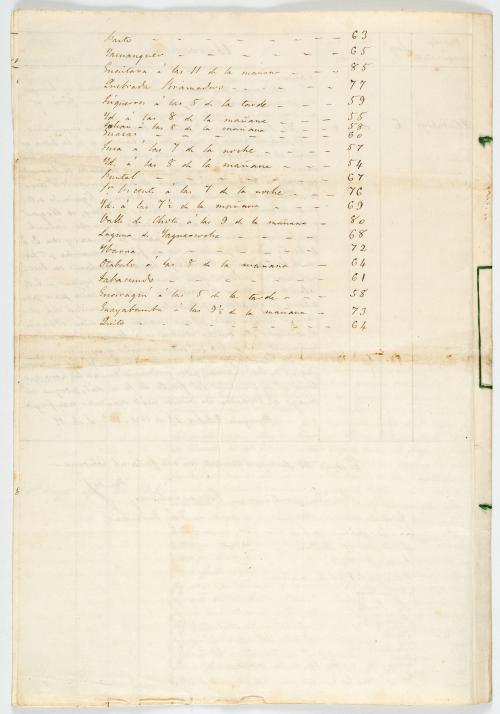 Pasto - - - - - - 63
Yacuanquer - - - - - 65
Guaitara à las 11 de la mañana - - - 85
Quebrada Bramadero - - - - 77
Tuquerres à las 5 de la tarde - - - 59
Yd. à las 8 de la mañana - - - 55
à las 8 de la mañana - - - 58
- - - - - - 60
à las 7 de la noche - - - 57
Yd. à las 8 de la mañana - - - 54
Puntal - - - - - - 67
Sn. Vicente à las 7 de la noche - - - 76
Yd. à las 7½ de la mañana - - - 69
Valle de Chota à las 9 de la mañana - - 80
Laguna de Yaguarcocha - - - - 68
Ybarra - - - - - - 72
Otabalo à las 8 de la mañana - - 64
Tabacundo - - - - - - 61
à las 5 de la tarde - - - 58
Guayabamba à las 9½ de la mañana - 73
Quito - - - - - - 64